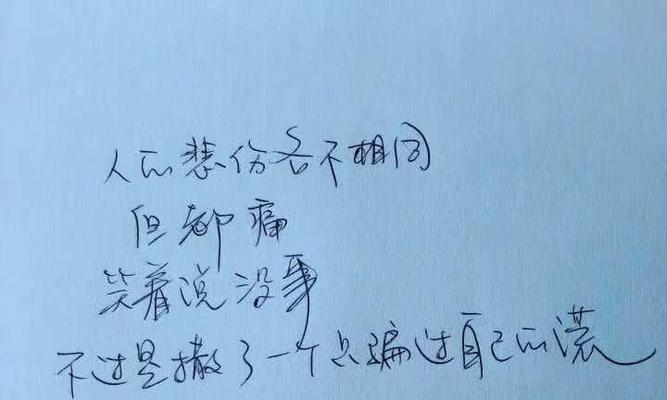 人的悲伤各不相同
但都痛
笑着说没事
不过是撒了一个只骗过自己的谎